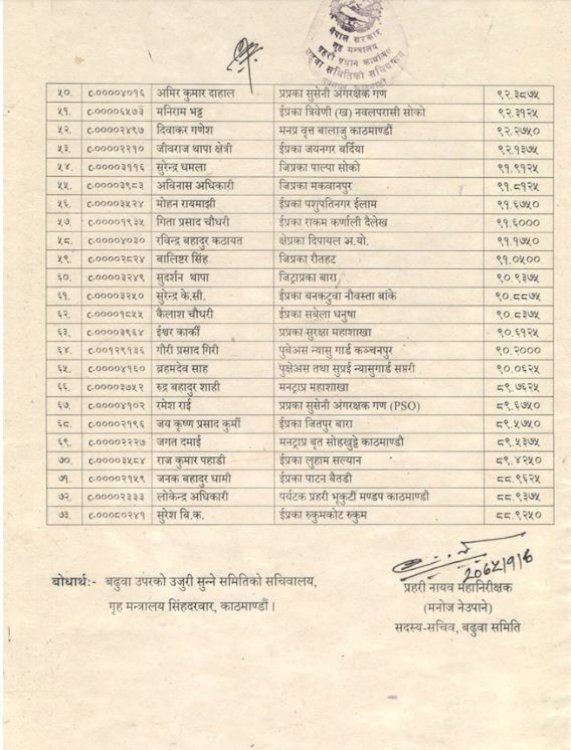 नेपाल सरकार
गृह मन्त्रालय
प्रहरी प्रधान कार्यालय
बढुवा समितिको सचिवालय
५०. ८.००००४०१६ अमिर कुमार दाहाल प्रप्रका सुसेनी अंगरक्षक गण ९२.३८७५
५१. ८.००००६५७३ मनिराम भट्ट ईप्रका त्रिवेणी (ख) नवलपरासी सोको ९२.३१२५
५२. ८.००००२४९७ दिवाकर गणेश मनप्र वृत्त बालाजु काठमाण्डौं ९२.२७५०
५३. ८.००००२२१० जीवराज थापा क्षेत्री ईप्रका जयनगर बर्दिया ९२.१३७५
५४. ८.००००३११६ सुरेन्द्र धमला जिप्रका पाल्पा सोको ९१.९१२५
५५. ८.००००३९८३ अविनास अधिकारी जिप्रका मकवानपुर ९१.८१२५
५६. ८.००००३५२४ मोहन रायमाझी ईप्रका पशुपतिनगर ईलाम ९१.६७५०
५७. ८.००००१९३५ गिता प्रसाद चौधरी ईप्रका राकम कर्णाली दैलेख ९१.६०००
५८. ८.००००४०३० रविन्द्र बहादुर कठायत क्षेप्रका दिपायल अ.यो. ९१.१७५०
५९. ८.००००२८२४ बालिष्टर सिंह जिप्रका रौतहट ९१.०५००
६०. ८.००००३२४९ सुदर्शन थापा जिट्राप्रका बारा ९०.९३७५
६१. ८.००००३२५० सुरेन्द्र के.सी. ईप्रका बनकटुवा नौवस्ता बांके ९०.८८७५
६२. ८.००००१८५५ कैलाश चौधरी ईप्रका सबैला धनुषा ९०.८३७५
६३. ८.००००३९६४ ईश्वर कार्की प्रप्रका सुरक्षा महाशाखा ९०.६१२५
६४. ८.००१२९१३६ गौरी प्रसाद गिरी पुबेअस न्यासु गार्ड कञ्चनपुर ९०.२०००
६५. ८.००००४१६० ब्रहमदेव साह पुक्षेअस तथा सुप्रई न्यासुगार्ड सप्तरी ९०.०६२५
६६. ८.००००३७५२ रुद्र बहादुर शाही मनट्राप्र महाशाखा ८९.७६२५
६७. ८.००००४१०२ रमेश राई प्रप्रका सुसेनी अंगरक्षक गण (PSO) ८९.६७५०
६८. ८.००००२१९६ जय कृष्ण प्रसाद कुर्मी ईप्रका जितपुर बारा ८९.५७५०
६९. ८.००००२२२७ जगत दमाई मनट्राप्र बृत सोह्रखुट्टे काठमाण्डौ ८९.५३७५
७०. ८.००००३५८४ राज कुमार पहाडी ईप्रका लुहाम सल्यान ८९.४२५०
७१. ८.००००२१५९ जनक बहादुर धामी ईप्रका पाटन बैतडी ८८.९६२५
७२. ८.००००२३३३ लोकेन्द्र अधिकारी पर्यटक प्रहरी भृकुटी मण्डप काठमाण्डौ ८८.९३७५
७३. ८.००८०२४१ सुरेश वि.क. ईप्रका रुकुमकोट रुकुम ८८.९२५०
२०६५/१/६
बोधार्थ:- बढुवा उपरको उजुरी सुन्ने समितिको सचिवालय,
गृह मन्त्रालय सिंहदरवार, काठमाण्डौं ।
प्रहरी नायव महानिरीक्षक
(मनोज नेउपाने)
सदस्य-सचिव, बढुवा समिति